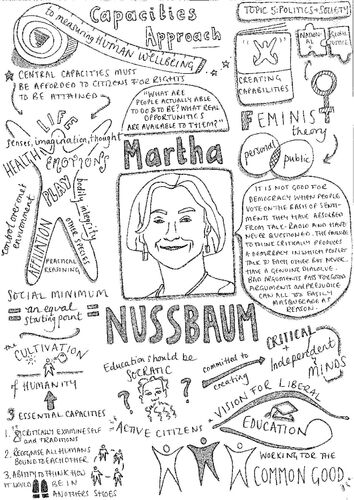 Capacities
Approach
to measuring HUMAN WELLBEING
TOPIC 5: POLITICS + SOCIETY
CENTRAL CAPACITIES MUST
BE AFFORDED TO CITIZENS FOR RIGHTS
TO BE ATTAINED
"WHAT ARE
PEOPLE ACTUALLY ABLE
TO DO & TO BE? WHAT REAL
OPPORTUNITIES
ARE AVAILABLE TO THEM?"
CREATING
CAPABILITIES
FEMINIST
theory
personal
public
LIFE
senses, imagination, thought
HEALTH
EMOTIONS
PLAY
bodily integrity
control over one's
environment
AFFILIATION
other species
PRACTICAL
REASONING
Martha
NUSSBAUM
IT IS NOT GOOD FOR
DEMOCRACY WHEN PEOPLE
VOTE ON THE BASIS OF SENTI-
MENTS THEY HAVE ABSORBED
FROM TALK-RADIO AND HAVE
NEVER QUESTIONED. THE FAILURE
TO THINK CRITICALLY PRODUCES
A DEMOCRACY IN WHICH PEOPLE
TALK TO EACH OTHER BUT NEVER
HAVE A GENUINE DIALOGUE.
BAD ARGUMENTS PASS FOR GOOD
ARGUMENTS AND PREJUDICE
CAN ALL TOO EASILY
MASQUERADE AS
REASON.
SOCIAL MINIMUM
= an equal
starting point
the
CULTIVATION
of HUMANITY
3 ESSENTIAL CAPACITIES
1. CRITICALLY EXAMINE SELF
and TRADITIONS
2. RECOGNISE ALL HUMANS
BOUND TO EACH OTHER
3. ABILITY TO THINK HOW
IT WOULD BE IN
ANOTHERS SHOES
Education should be
SOCRATIC
? ?
= ACTIVE CITIZENS
committed to
creating
CRITICAL
+
Independent
MINDS
VISION FOR LIBERAL
EDUCATION
WORKING FOR THE
COMMON GOOD